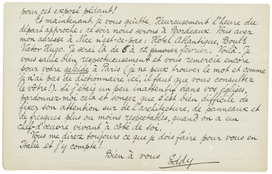 pour cet exposé pédant!
Et maintenant, je vous quitte. Heureusement l'heure du
départ approche: ce soir nous serons à Bordeaux. Vous avez
mon adresse à Nice n'est-ce-pas: Hôtel Atlantique, Boulᵈ
Victor Hugo. Je serai là de 6 à 12 janvier février. Voilà. Je
vous salue bien respectueusement et vous remercie encore
pour votre guidée à Paris (je ne peux trouver le mot et comme
je n'ai pas de dictionnaire ici, il faut que vous consultez
le votre!). Si j'étais un peu inattentif dans vos églises,
pardonnez-moi cela et songez que c'est bien difficile de
fixer son attention sur de l'architecture, de panneaux et
de fresques plus ou moins respectables, quand on a un
chef-d'œuvre vivant à côté de soi.
Vous me direz toujours ce que je dois faire pour vous en
Italie et j'y compte!
Bien à vous Eddy